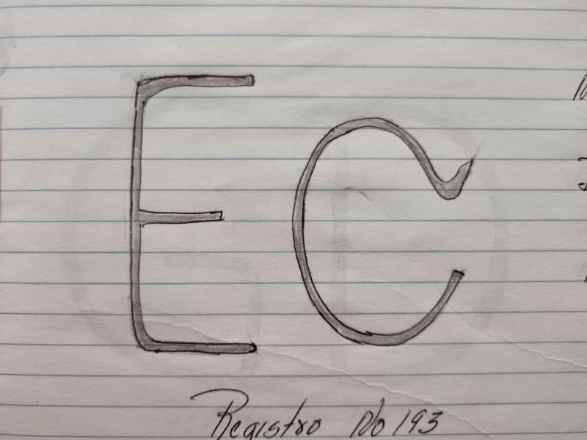 EC
Registro No 193